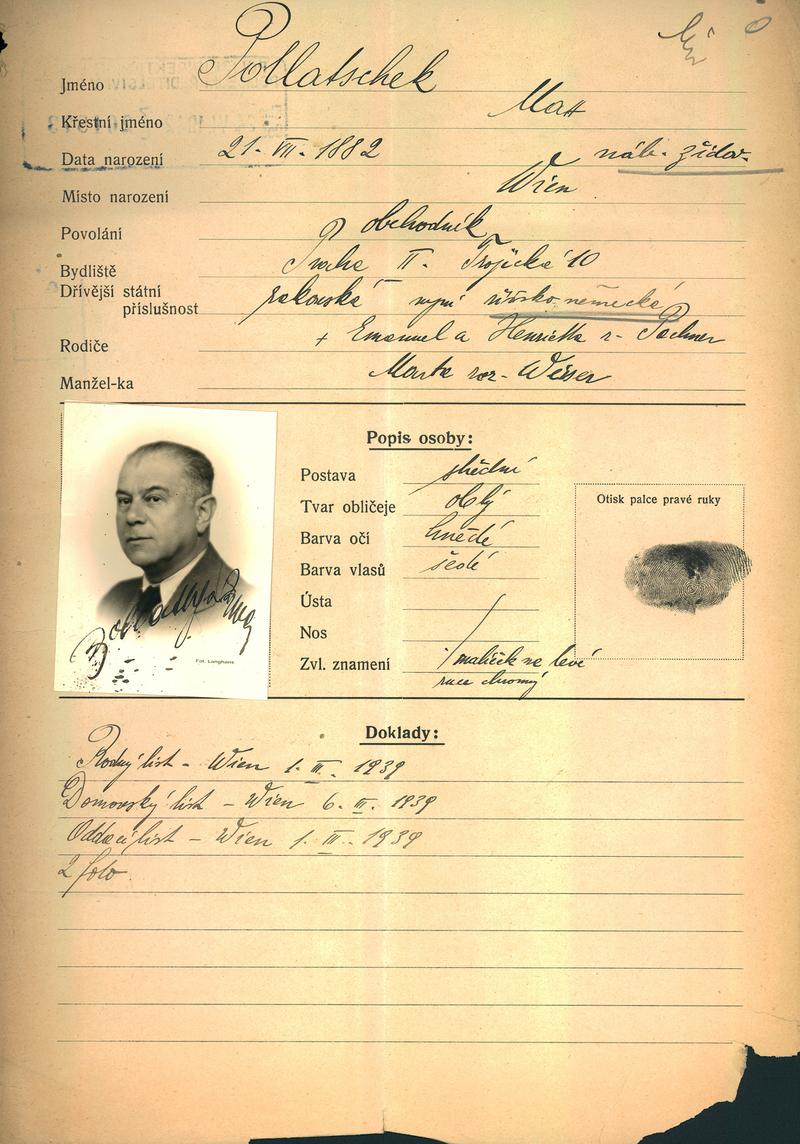 Jméno Pollatschek
Křestní jméno Max
Data narození 21. VII. 1882 náb. židov.
Místo narození Wien
Povolání obchodník
Bydliště Praha II. Trojická 10
Dřívější státní příslušnost rakouská nyní říšsko německá
Rodiče + Emanuel a Henrietta r.
Manžel-ka roz. Weiser
Popis osoby:
Postava střední
Tvar obličeje oblý
Barva očí hnědé
Barva vlasů šedé
Ústa
Nos
Zvl. znamení malíček na levé
ruce chromý
Otisk palce pravé ruky
Fot. Langhans
Doklady:
Rodný list - Wien 1. III. 1939
Domovský list - Wien 6. III. 1939
Oddací list - Wien 1. III. 1939
2 foto